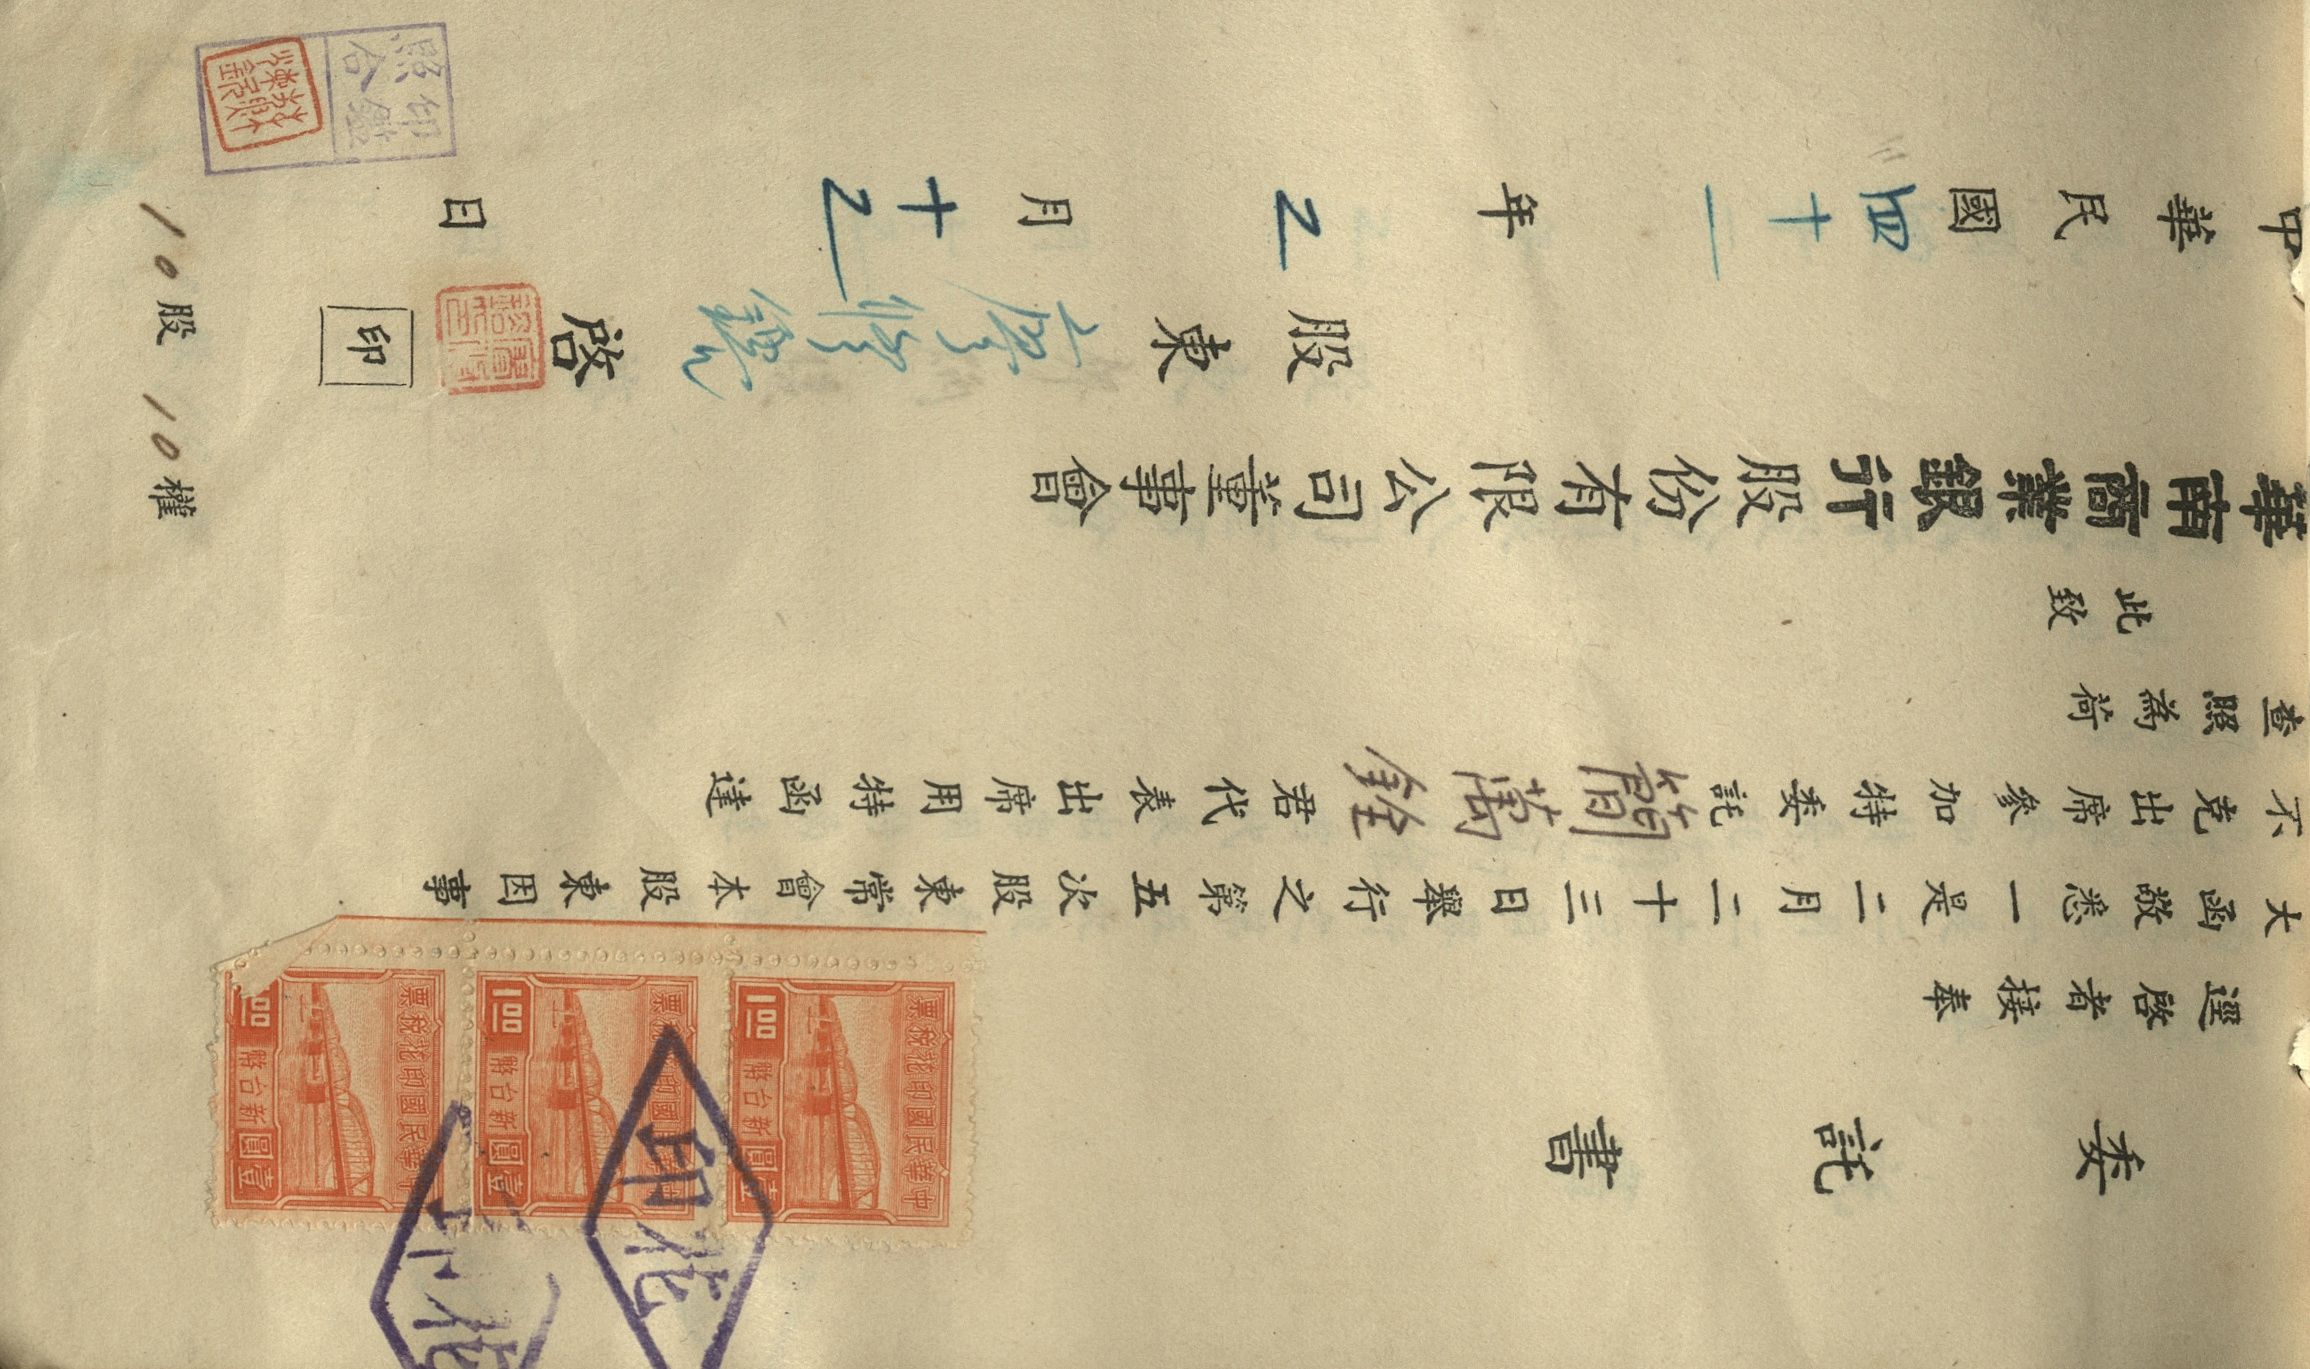 委託書
逕啓者接奉
大函敬悉一是二月二十三日舉行之第五次股東常會本股東因事
不克出席參加特委託簡萬銓君代表出席用特函達
查照為荷
此致
華南商業銀行股份有限公司董事會
股東 啓 印
中華民國四十一年2月十2日
10股 10權
印鑑
照合
中華民國印花稅票
壹圓 新台幣 1.00
中華民國印花稅票
壹圓 新台幣 1.00
中華民國印花稅票
壹圓 新台幣 1.00
印花
印花